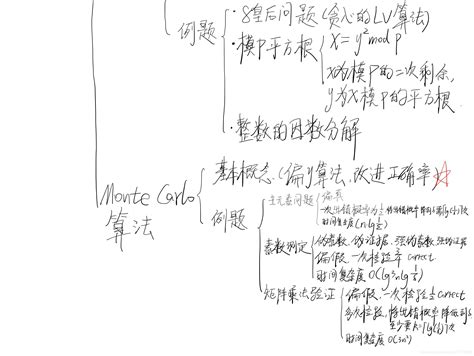 例题
·8皇后问题(贪心的LV算法)
·模P平方根
x=y²mod p
x为模p的二次剩余,
y为x模p的平方根.
·整数的因数分解
Monte Carlo
算法
基本概念.(偏y算法,改进正确率)
例题
主元素问题
偏真
时间复杂度
素数测定
伪素数,伪证据,强伪素数,强伪证据
偏假.一次检验 correct.
时间复杂度
矩阵乘法验证
偏假.一次检验½correct
多次检验,
时间复杂度O(3n²)